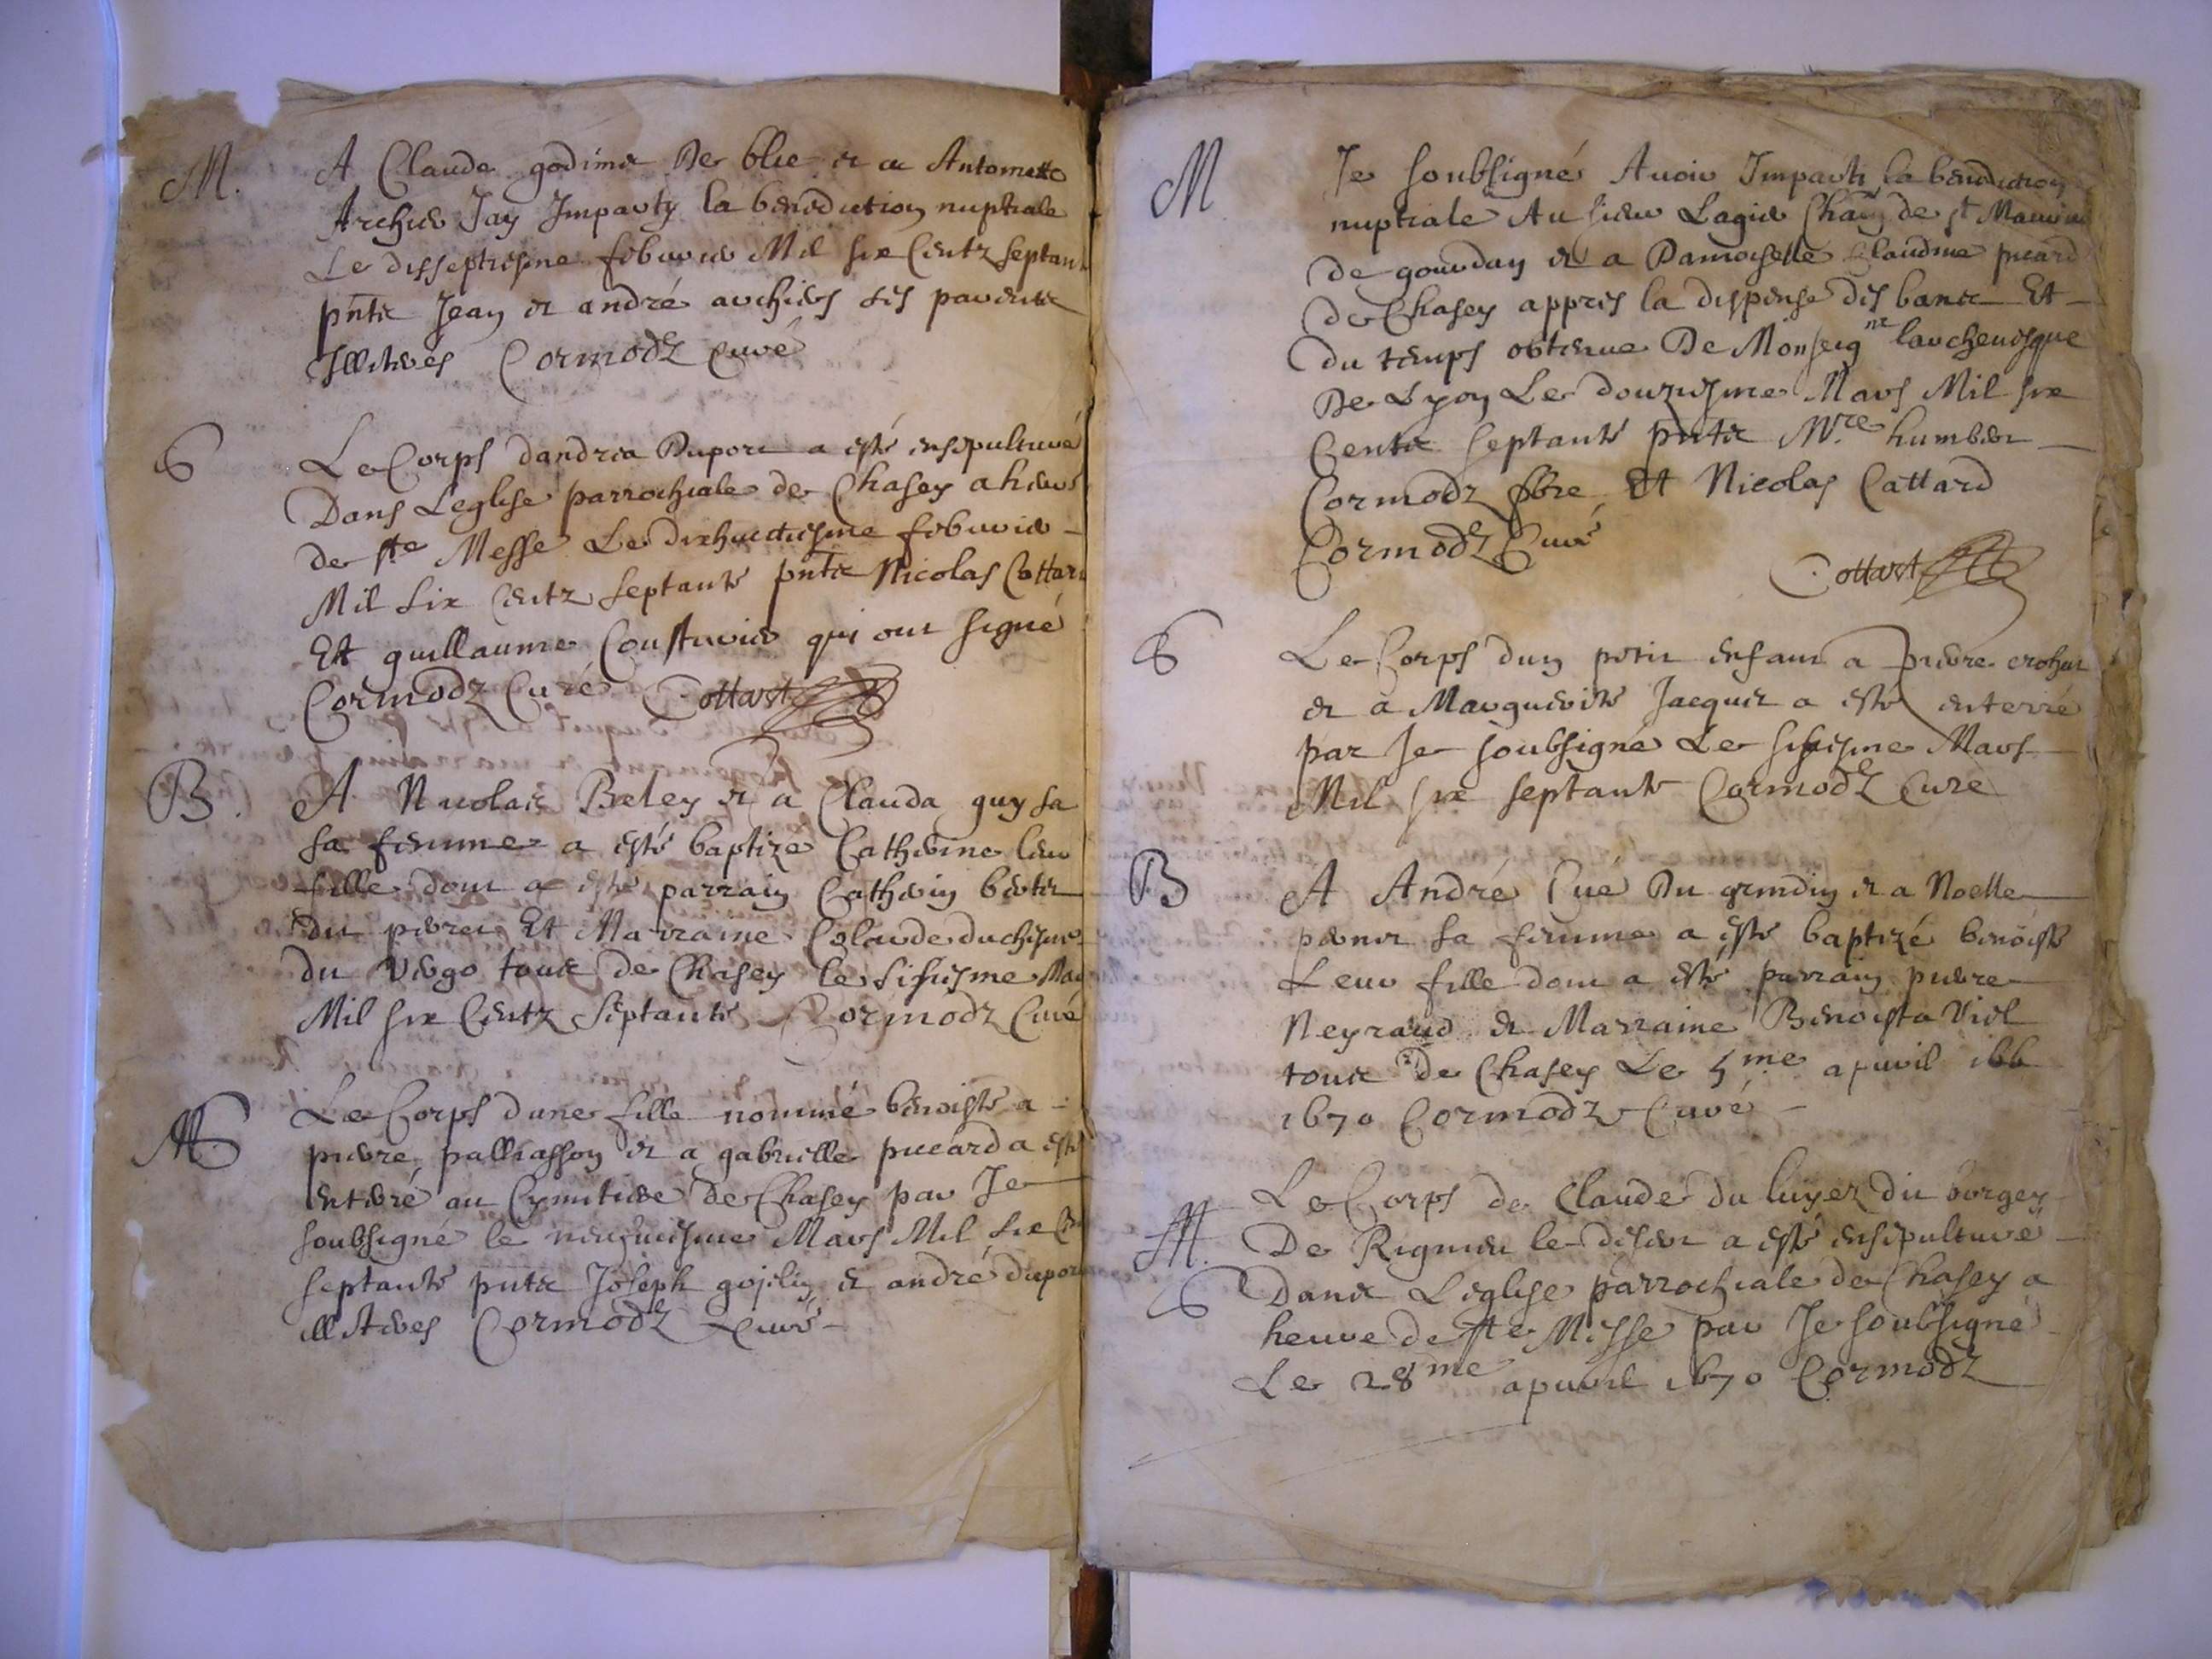 M.
A Claude godimet De blie et a Antoinette
Archier Jay Imparty la benediction nuptiale
Le disseptiesme febvrier Mil six Centz septan
pntz Jean et andré archiers ses parentz
Illiteres Cormodz Curé
S
Le Corps dandrea Duport a esté ensepulturé
Dans Leglise parrochiale de Chasey a heure
de ste Messe Le dixhuictiesme febvrier
Mil six Centz septante pntz Nicolas Cottar
Et guillaume Cousturier qui ont signé
Cormodz Curé Cottart
B.
A Nicolas Beley et a Clauda guy sa
sa femme a esté baptizé Catherine leur
fille dont a esté parrain Catherin
du Et Marraine Colaude
du tous de Chasey le sixiesme Mar
Mil six Centz septante Cormodz Curé
M
Le Corps dune fille nommé benoiste a
pierre palliasson et a gabrielle picard a esté
enterré au Cymitiere de Chasey par Je
soubsigné le neufviesme Mars Mil six C
septante pntz Joseph gojelin et andré dupor
illiteres Cormodz Curé
M
Je soubsigné Avoir Imparti la benediction
nuptiale Au sieur Lagier de st
de gourdan et a Damoiselle Claudine picard
de Chasey appres la dispense des bancz Et
du temps obtenue De Monseignr larchevesque
De Lyon Le douziesme Mars Mil six
Centz septante pntz Mre humbert
Cormodz pbre Et Nicolas Cattard
Cormodz Curé
Cottart
S
Le Corps dun petit enfant a pierre
et a Marguerite Jacquet a esté enterré
par Je soubsigné Le sixiesme Mars
Mil six septante Cormodz Curé
B
A André Cué Du et a Noelle
sa femme a esté baptizé benoiste
Leur fille dont a esté parrain pierre
Neyraud et Marraine Benoista Viol
tous de Chasey Le 5me apvril 166
1670 Cormodz Curé
M.
S
Le Corps de Claude du luyez du borgey
De Rignieu le desert a esté ensepulturé
Dans Leglise parrochiale de Chasey a
heure de ste Messe par Je soubsigné
Le 28me apvril 1670 Cormodz